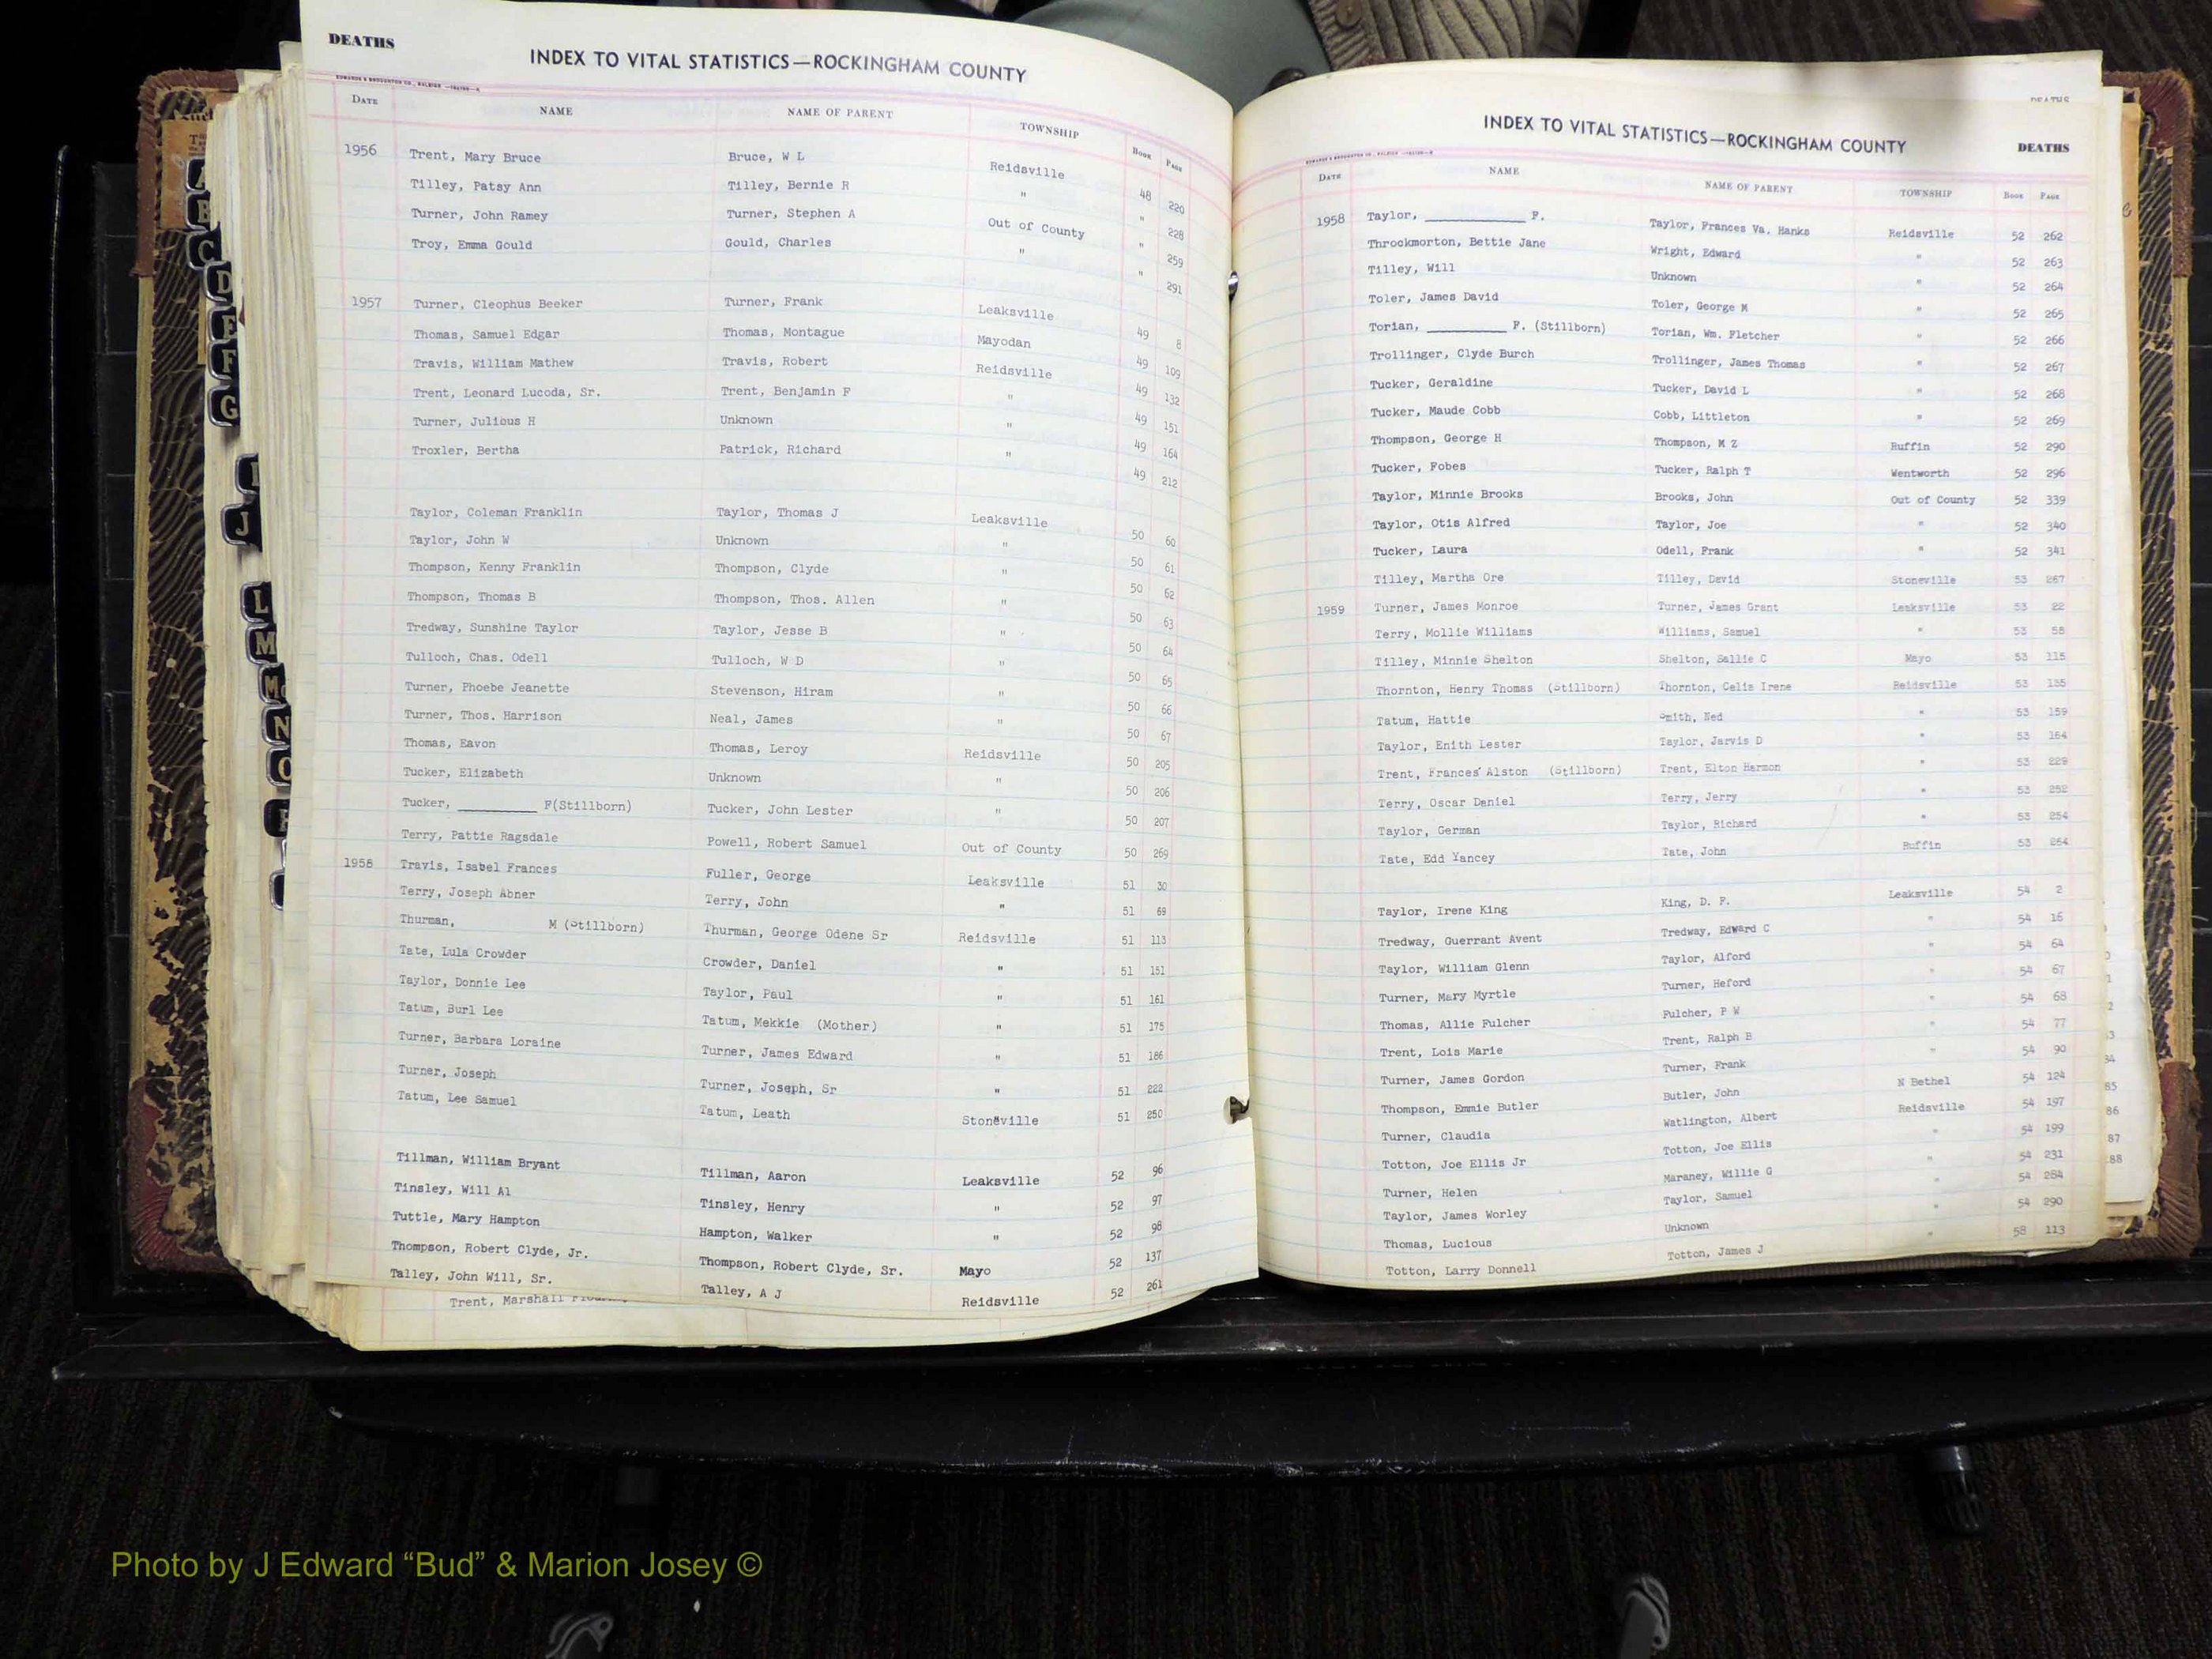 DEATHS
INDEX TO VITAL STATISTICS—ROCKINGHAM COUNTY
DATE NAME NAME OF PARENT TOWNSHIP BOOK PAGE
1956 Trent, Mary Bruce Bruce, W L Reidsville 48 220
Tilley, Patsy Ann Tilley, Bernie R " " 228
Turner, John Ramey Turner, Stephen A Out of County " 259
Troy, Emma Gould Gould, Charles " " 291
1957 Turner, Cleophus Beeker Turner, Frank Leaksville 49 8
Thomas, Samuel Edgar Thomas, Montague Mayodan 49 109
Travis, William Mathew Travis, Robert Reidsville 49 132
Trent, Leonard Lucoda, Sr. Trent, Benjamin F " 49 151
Turner, Julious H Unknown " 49 164
Troxler, Bertha Patrick, Richard " 49 212
Taylor, Coleman Franklin Taylor, Thomas J Leaksville 50 60
Taylor, John W Unknown " 50 61
Thompson, Kenny Franklin Thompson, Clyde " 50 62
Thompson, Thomas B Thompson, Thos. Allen " 50 63
Tredway, Sunshine Taylor Taylor, Jesse B " 50 64
Tulloch, Chas. Odell Tulloch, W D " 50 65
Turner, Phoebe Jeanette Stevenson, Hiram " 50 66
Turner, Thos. Harrison Neal, James " 50 67
Thomas, Eavon Thomas, Leroy Reidsville 50 205
Tucker, Elizabeth Unknown " 50 206
Tucker, __________ F(Stillborn) Tucker, John Lester " 50 207
Terry, Pattie Ragsdale Powell, Robert Samuel Out of County 50 269
1958 Travis, Isabel Frances Fuller, George Leaksville 51 30
Terry, Joseph Abner Terry, John " 51 69
Thurman, M (Stillborn) Thurman, George Odene Sr Reidsville 51 113
Tate, Lula Crowder Crowder, Daniel " 51 151
Taylor, Donnie Lee Taylor, Paul " 51 161
Tatum, Burl Lee Tatum, Mekkie (Mother) " 51 175
Turner, Barbara Loraine Turner, James Edward " 51 186
Turner, Joseph Turner, Joseph, Sr " 51 222
Tatum, Lee Samuel Tatum, Leath Stoneville 51 250
Tillman, William Bryant Tillman, Aaron Leaksville 52 96
Tinsley, Will Al Tinsley, Henry " 52 97
Tuttle, Mary Hampton Hampton, Walker " 52 98
Thompson, Robert Clyde, Jr. Thompson, Robert Clyde, Sr. Mayo 52 137
Talley, John Will, Sr. Talley, A J Reidsville 52 261
Trent, Marshall
DEATHS
INDEX TO VITAL STATISTICS—ROCKINGHAM COUNTY
DEATHS
DATE NAME NAME OF PARENT TOWNSHIP BOOK PAGE
1958 Taylor, __________ F. Taylor, Frances Va. Hanks Reidsville 52 262
Throckmorton, Bettie Jane Wright, Edward " 52 263
Tilley, Will Unknown " 52 264
Toler, James David Toler, George M " 52 265
Torian, __________ F. (Stillborn) Torian, Wm. Fletcher " 52 266
Trollinger, Clyde Burch Trollinger, James Thomas " 52 267
Tucker, Geraldine Tucker, David L " 52 268
Tucker, Maude Cobb Cobb, Littleton " 52 269
Thompson, George H Thompson, M Z Ruffin 52 290
Tucker, Fobes Tucker, Ralph T Wentworth 52 296
Taylor, Minnie Brooks Brooks, John Out of County 52 339
Taylor, Otis Alfred Taylor, Joe " 52 340
Tucker, Laura Odell, Frank " 52 341
Tilley, Martha Ore Tilley, David Stoneville 53 267
1959 Turner, James Monroe Turner, James Grant Leaksville 53 22
Terry, Mollie Williams Williams, Samuel " 53 58
Tilley, Minnie Shelton Shelton, Sallie C Mayo 53 115
Thornton, Henry Thomas (Stillborn) Thornton, Celia Irene Reidsville 53 135
Tatum, Hattie Smith, Ned " 53 159
Taylor, Enith Lester Taylor, Jarvis D " 53 164
Trent, Frances Alston (Stillborn) Trent, Elton Harmon " 53 229
Terry, Oscar Daniel Terry, Jerry " 53 252
Taylor, German Taylor, Richard " 53 254
Tate, Edd Yancey Tate, John Ruffin 53 264
Taylor, Irene King King, D. F. Leaksville 54 2
Tredway, Guerrant Avent Tredway, Edward C " 54 16
Taylor, William Glenn Taylor, Alford " 54 64
Turner, Mary Myrtle Turner, Heford " 54 67
Thomas, Allie Fulcher Fulcher, P W " 54 68
Trent, Lois Marie Trent, Ralph B " 54 77
Turner, James Gordon Turner, Frank " 54 90
Thompson, Emmie Butler Butler, John N Bethel 54 124
Turner, Claudia Watlington, Albert Reidsville 54 197
Totton, Joe Ellis Jr Totton, Joe Ellis " 54 199
Turner, Helen Maraney, Willie G " 54 231
Taylor, James Worley Taylor, Samuel " 54 284
Thomas, Lucious Unknown " 54 290
Totton, Larry Donnell Totton, James J " 58 113
85
86
87
88
A
B
C
D
E
F
G
J
L
M
Mc
N
O
Photo by J Edward “Bud” & Marion Josey ©